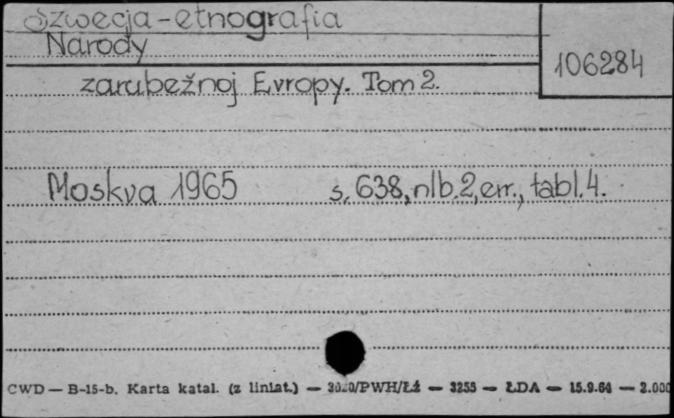 Szwecja-etnografia
Narody
106284
zarubežnoj Evropy. Tom 2.
Moskva 1965 s. 638, nlb. 2, err., tabl. 4.
CWD — B-15-b. Karta katal. (z liniat.) — /PWH/Łź — 3255 — ŁDA — 15.9.64 — 2.000